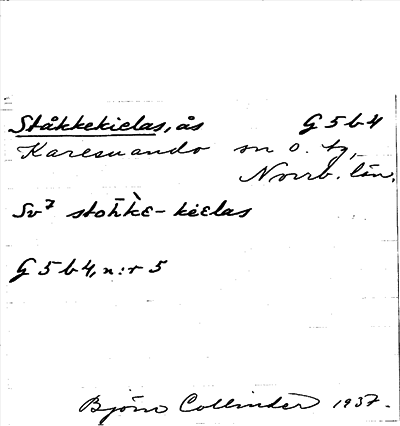 Ståkkekielas, ås G 5 b 4
Karesuando sn o. tg,
Norrb. län.
Sv⁷ stoh̀kε-kielas
G 5 b 4, n:r 5
Björn Collinder 1937.